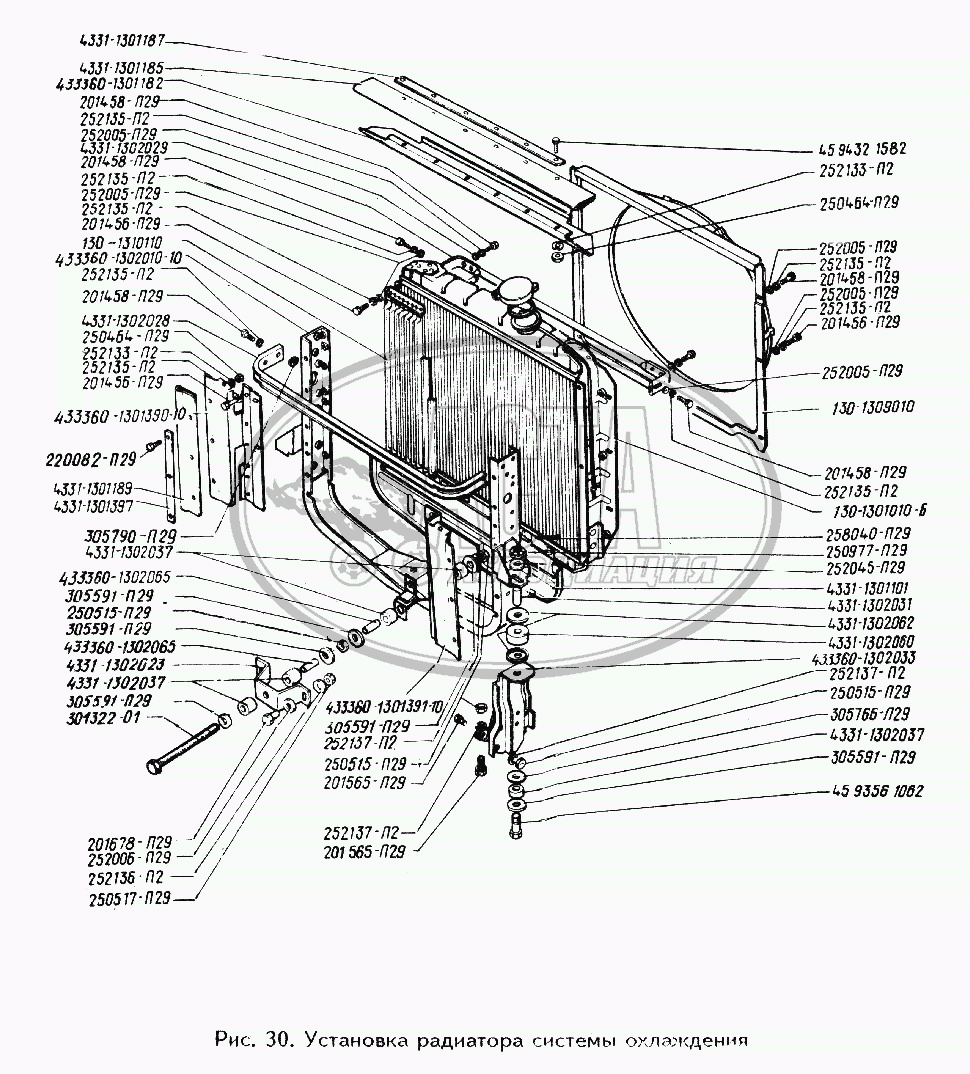 4331-1301187
4331-1301185
433360-1301182
201458-П29
252135-П2
252005-П29
4331-1302029
201458-П29
252135-П2
252005-П29
252135-П2
201456-П29
130-1310110
433360-1302010-10
252135-П2
201458-П29
4331-1302028
250464-П29
252133-П2
252135-П2
201456-П29
433360-1301390-10
220082-П29
4331-1301189
4331-1301397
305790-П29
4331-1302037
433360-1302065
305591-П29
250515-П29
305591-П29
433360-1302065
4331-1302023
4331-1302037
305591-П29
301322-01
201678-П29
252006-П29
252136-П2
250517-П29
433360-1301391-10
305591-П29
252137-П2
250515-П29
201565-П29
252137-П2
201565-П29
459432 1582
252133-П2
250464-П29
252005-П29
252135-П2
201458-П29
252005-П29
252135-П2
201456-П29
252005-П29
130-1309010
201458-П29
252135-П2
130-1301010-Б
258040-П29
250977-П29
252045-П29
4331-1301101
4331-1302031
4331-1302062
4331-1302060
433360-1302033
252137-П2
250515-П29
305766-П29
4331-1302037
305591-П29
45 9356 1062
Рис. 30. Установка радиатора системы охлаждения